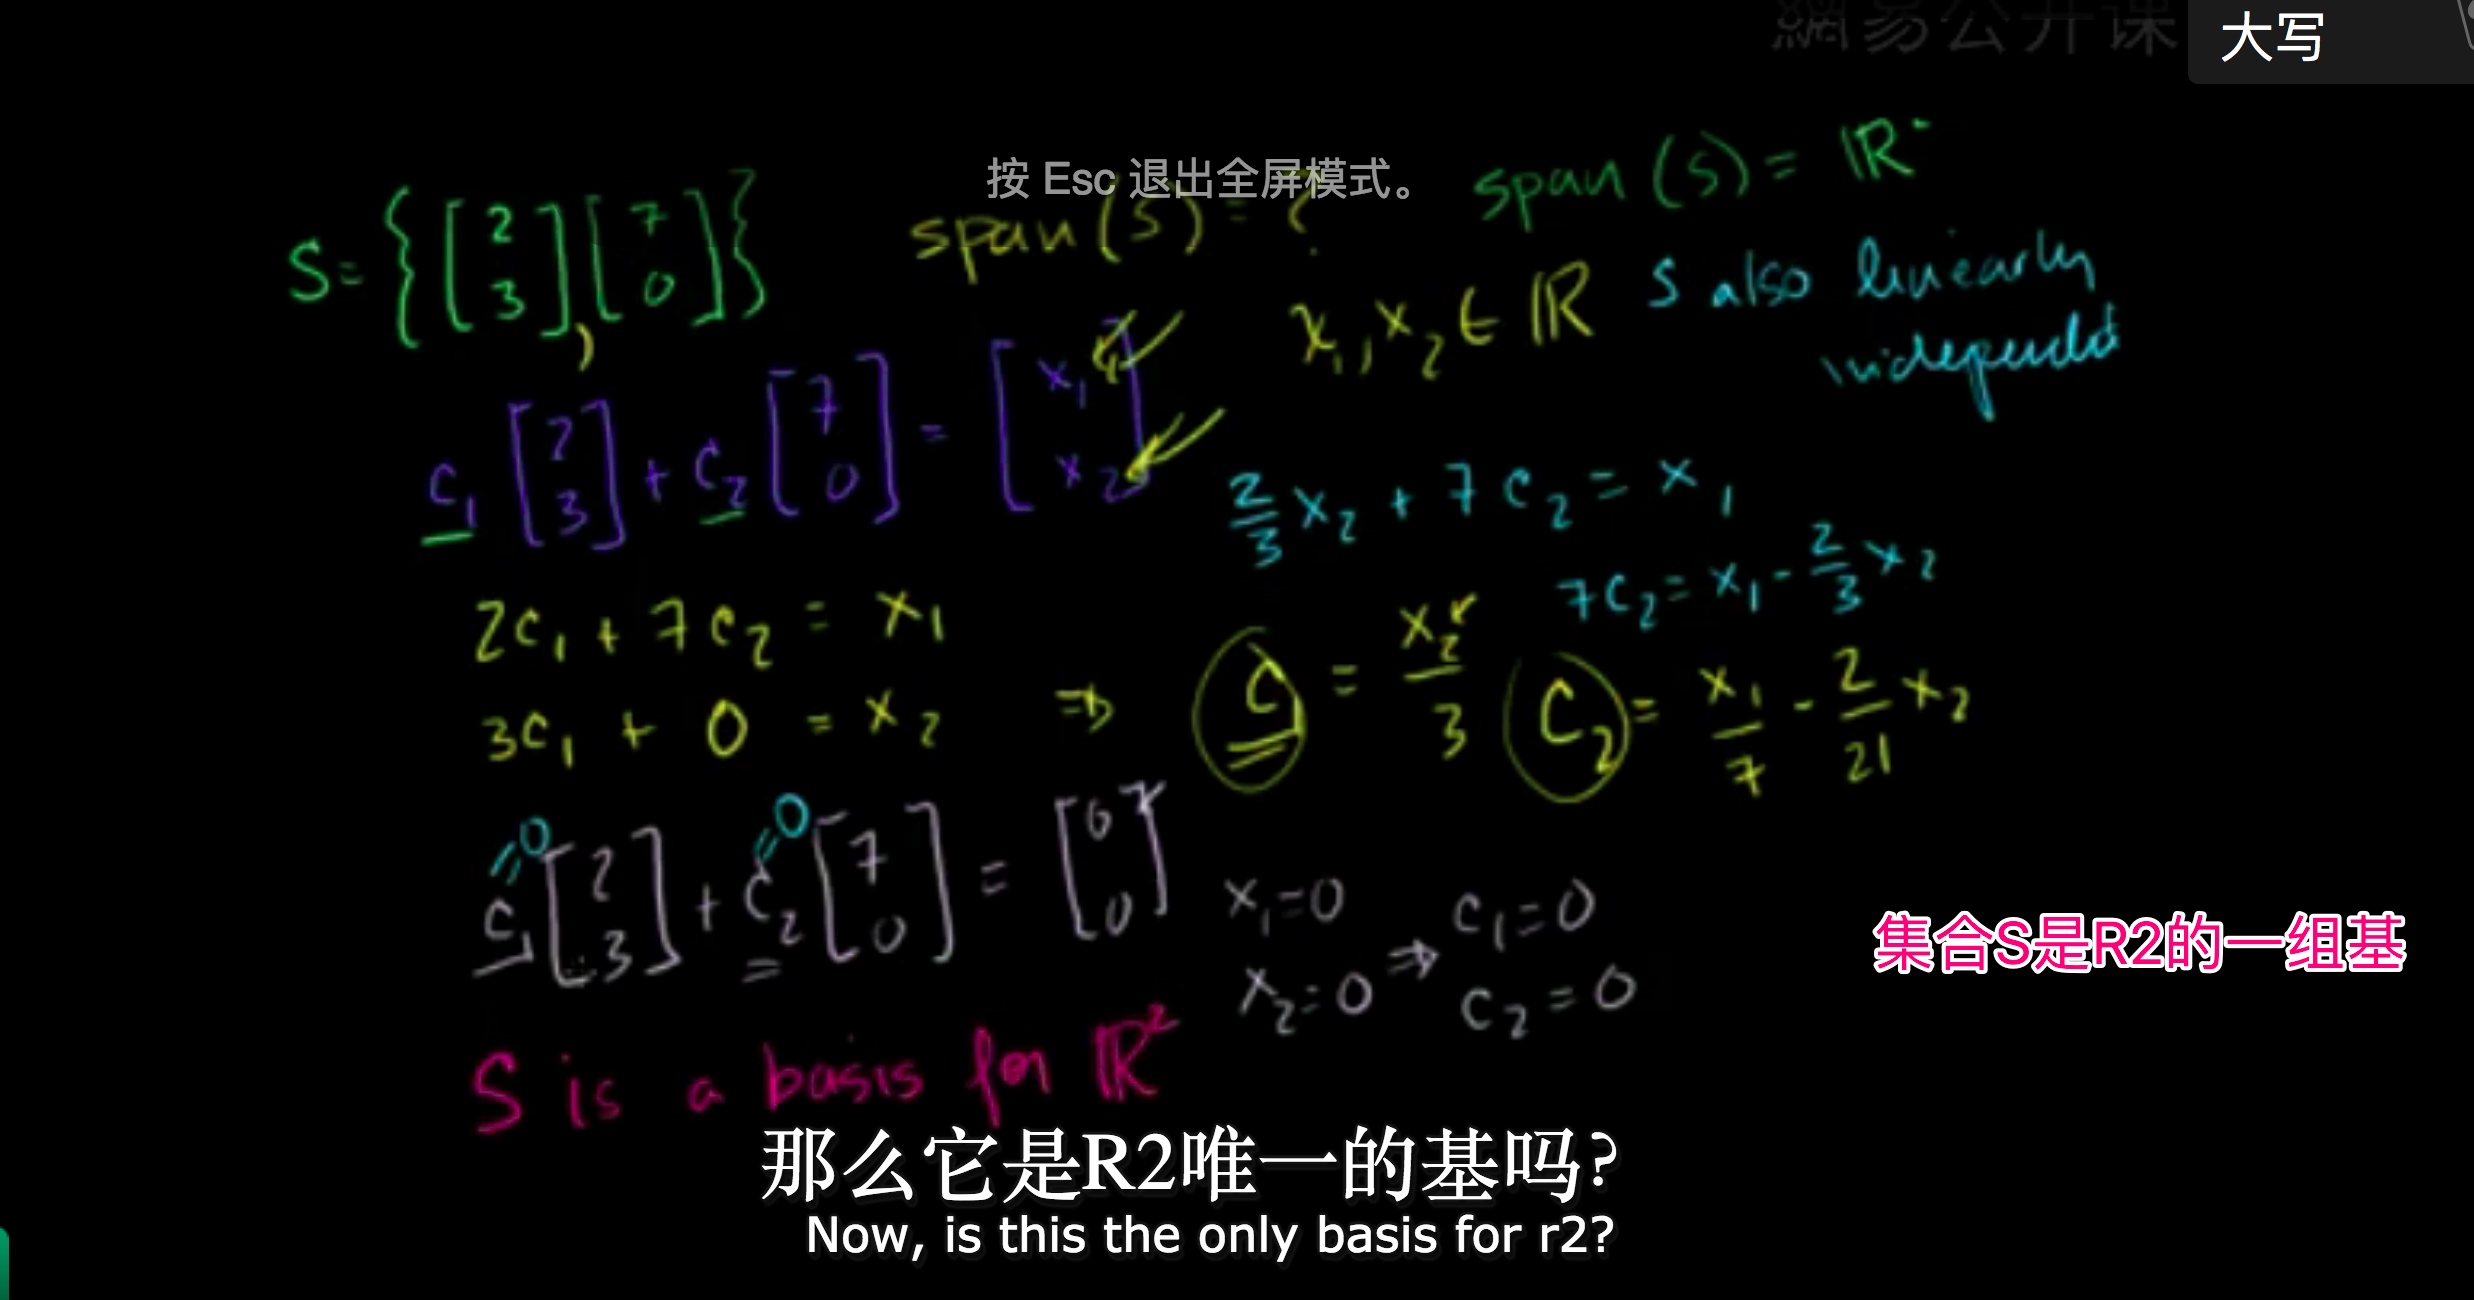 網易公开课
大写
按 Esc 退出全屏模式。
S = { [2 3], [7 0] }
span(S) = ?
span(S) = ℝ
x₁, x₂ ∈ ℝ
S also linearly
independ
c₁ [2 3] + c₂ [7 0] = [x₁ x₂]
2/3 x₂ + 7c₂ = x₁
7c₂ = x₁ - 2/3 x₂
2c₁ + 7c₂ = x₁
3c₁ + 0 = x₂ ⇒ c₁ = x₂/3
c₂ = x₁/7 - 2/21 x₂
=0 =0
c₁ [2 3] + c₂ [7 0] = [0 0]
x₁=0
x₂=0 ⇒ c₁=0
c₂=0
集合S是R2的一组基
S is a basis for ℝ²
那么它是R2唯一的基吗?
Now, is this the only basis for r2?